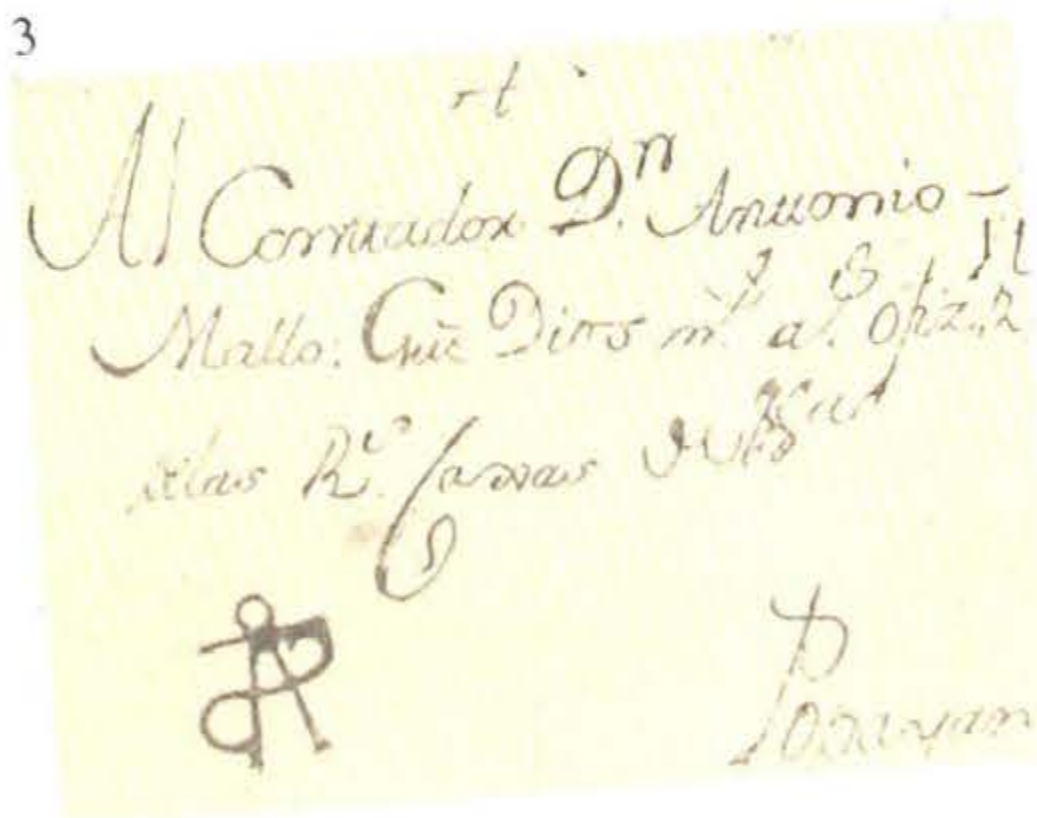 3
Al Contador Dn. Antonio
Mallo. Gue Dios ms. as. Ofizl. R
delas Rs. Caxas de
Popayan